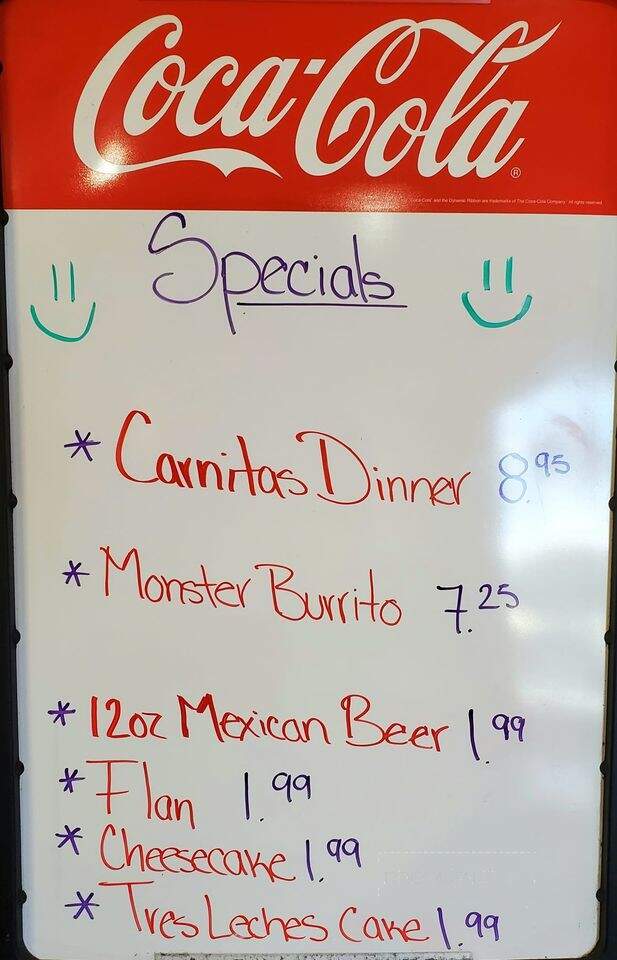 Coca-Cola®
"Coca-Cola" and the Dynamic Ribbon are trademarks of The Coca-Cola Company. All rights reserved
Specials
* Carnitas Dinner 8.95
* Monster Burrito 7.25
* 12oz Mexican Beer 1.99
* Flan 1.99
* Cheesecake 1.99
* Tres Leches Cake 1.99